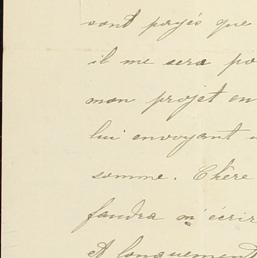 sont payés que
il me sera po
mon projet en
lui envoyant
somme. Chère
faudra m'écrir
et longuement